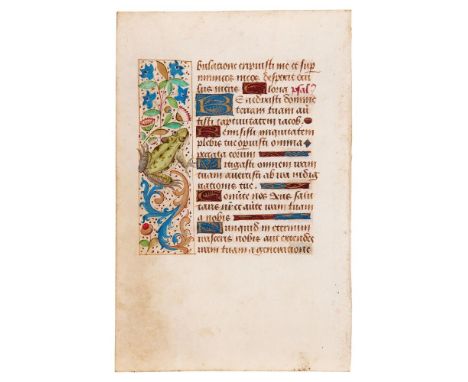 bulacione eripuisti me et sup
inimicos meos despexit ocu
lus meus Gloria psal
Benedixisti domine
terram tuam au
isti captivitatem iacob
Remisisti iniquitatem
plebis tue operuisti omnia
peccata eorum
Mitigasti omnem iram
tuam avertisti ab ira indig
nationis tue
Converte nos deus salu
taris nr et averte iram tuam
a nobis
Nunquid in eternum
irasceris nobis aut extendes
iram tuam a generatione